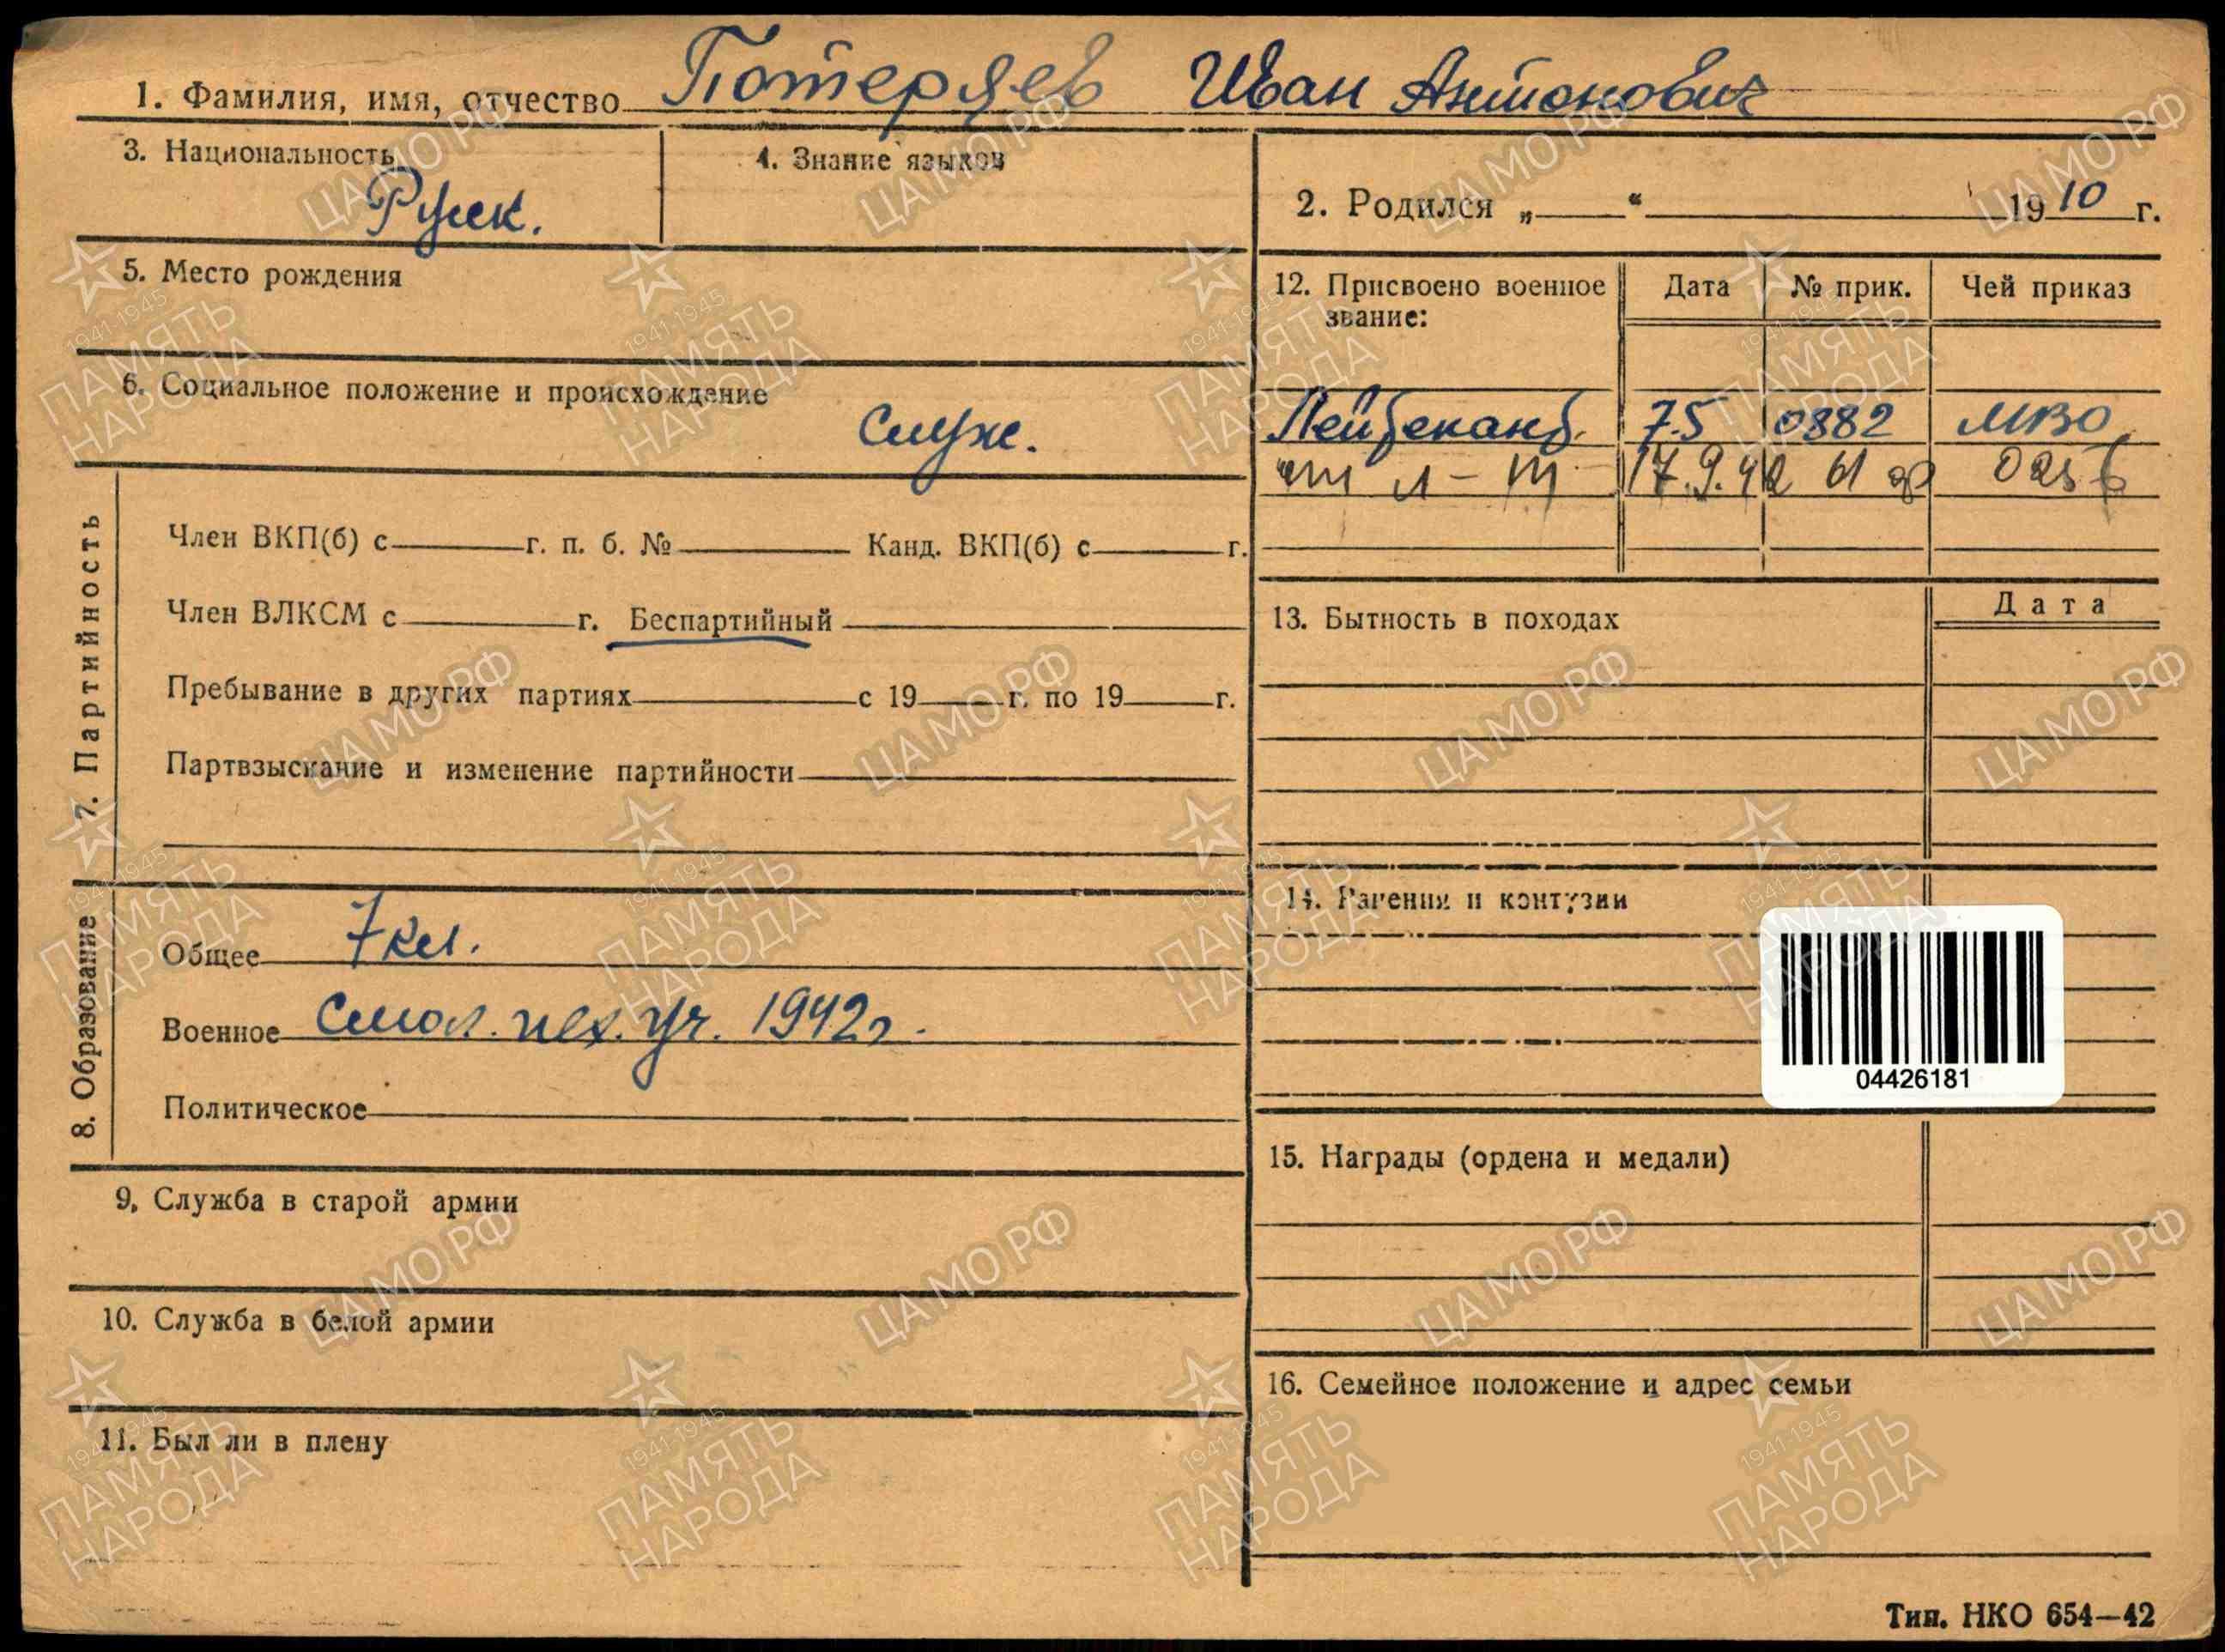 1. Фамилия, имя, отчество Потеряев Иван Антонович
3. Национальность Русск.
4. Знание языков
2. Родился „ “ 1910 г.
5. Место рождения
6. Социальное положение и происхождение
Служ.
7. Партийность
Член ВКП(б) с г. п. б. № Канд. ВКП(б) с г.
Член ВЛКСМ с г. Беспартийный
Пребывание в других партиях с 19 г. по 19 г.
Партвзыскание и изменение партийности
8. Образование
Общее 7 кл.
Военное Смол. пех. уч. 1942 г.
Политическое
9. Служба в старой армии
10. Служба в белой армии
11. Был ли в плену
12. Присвоено военное звание: Дата № прик. Чей приказ
7.5 0882 МВО
л-т 17.9.42 61 ар
13. Бытность в походах Дата
14. Ранения и контузии
04426181
15. Награды (ордена и медали)
16. Семейное положение и адрес семьи
Тип. НКО 654—42
ЦАМО РФ
1941-1945
ПАМЯТЬ
НАРОДА